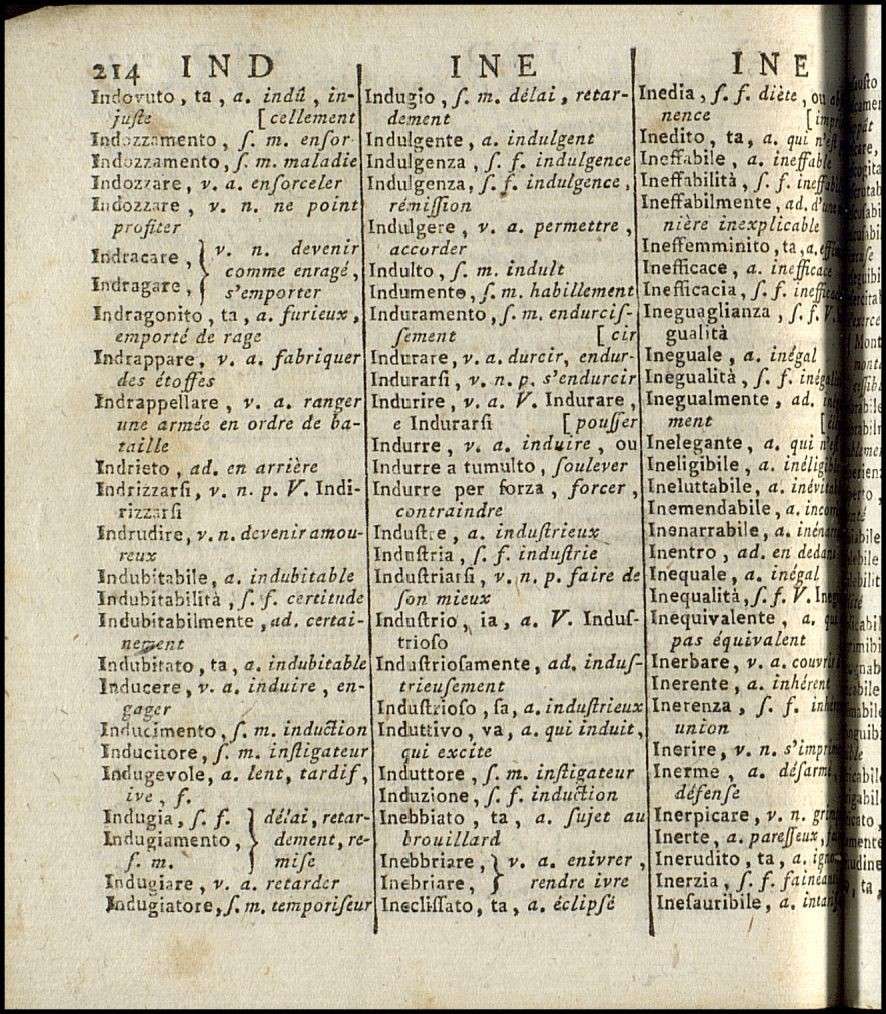 214 IND
Indovuto, ta, a. indû, in-
juſte [cellement
Indozzamento, ſ. m. enſor-
Indozzamento, ſ. m. maladie
Indozzare, v. a. enſorceler
Indozzare, v. n. ne point
profiter
Indracare, } v. n. devenir
comme enragé,
Indragare, } s'emporter
Indragonito, ta, a. furieux,
emporté de rage
Indrappare, v. a. fabriquer
des étoffes
Indrappellare, v. a. ranger
une armée en ordre de ba-
taille
Indrieto, ad. en arrière
Indrizzarſi, v. n. p. V. Indi-
rizzarſi
Indrudire, v. n. devenir amou-
reux
Indubitabile, a. indubitable
Indubitabilità, ſ. f. certitude
Indubitabilmente, ad. certai-
nement
Indubitato, ta, a. indubitable
Inducere, v. a. induire, en-
gager
Inducimento, ſ. m. induction
Inducitore, ſ. m. inſtigateur
Indugevole, a. lent, tardif,
ive, f.
Indugia, ſ. f. } délai, retar-
Indugiamento, } dement, re-
ſ. m. } miſe
Indugiare, v. a. retarder
Indugiatore, ſ. m. temporiſeur
INE
Indugio, ſ. m. délai, retar-
dement
Indulgente, a. indulgent
Indulgenza, ſ. f. indulgence
Indulgenza, ſ. f. indulgence,
rémiſſion
Indulgere, v. a. permettre,
accorder
Indulto, ſ. m. indult
Indumento, ſ. m. habillement
Induramento, ſ. m. endurciſ-
ſement [cir
Indurare, v. a. durcir, endur-
Indurarſi, v. n. p. s'endurcir
Indurire, v. a. V. Indurare,
e Indurarſi [pouſſer
Indurre, v. a. induire, ou
Indurre a tumulto, ſoulever
Indurre per forza, forcer,
contraindre
Induſtre, a. induſtrieux
Induſtria, ſ. f. induſtrie
Induſtriarſi, v. n. p. faire de
ſon mieux
Induſtrio, ia, a. V. Induſ-
trioſo
Induſtrioſamente, ad. induſ-
trieuſement
Induſtrioſo, ſa, a. induſtrieux
Induttivo, va, a. qui induit,
qui excite
Induttore, ſ. m. inſtigateur
Induzione, ſ. f. induction
Inebbiato, ta, a. ſujet au
brouillard
Inebbriare, } v. a. enivrer,
Inebriare, } rendre ivre
Inecliſſato, ta, a. éclipſé
INE
Inedia, ſ. f. diète, ou
nence
Inedito, ta, a. qui n'eſt
Ineffabile, a. ineffable
Ineffabilità, ſ. f.
Ineffabilmente, ad. d'une
nière inexplicable
Ineffemminito, ta, a.
Inefficace, a. inefficace
Inefficacia, ſ. f.
Ineguaglianza, ſ. f. V.
gualità
Ineguale, a. inégal
Inegualità, ſ. f.
Inegualmente, ad.
ment
Inelegante, a. qui n'eſt
Ineligibile, a.
Ineluttabile, a.
Inemendabile, a.
Inenarrabile, a.
Inentro, ad. en dedans
Inequale, a. inégal
Inequalità, ſ. f. V.
Inequivalente, a.
pas équivalent
Inerbare, v. a. couvrir
Inerente, a. inhérent
Inerenza, ſ. f.
union
Inerire, v. n.
Inerme, a. déſarmé,
défenſe
Inerpicare, v. n.
Inerte, a. pareſſeux,
Inerudito, ta, a.
Inerzia, ſ. f.
Ineſauribile, a.